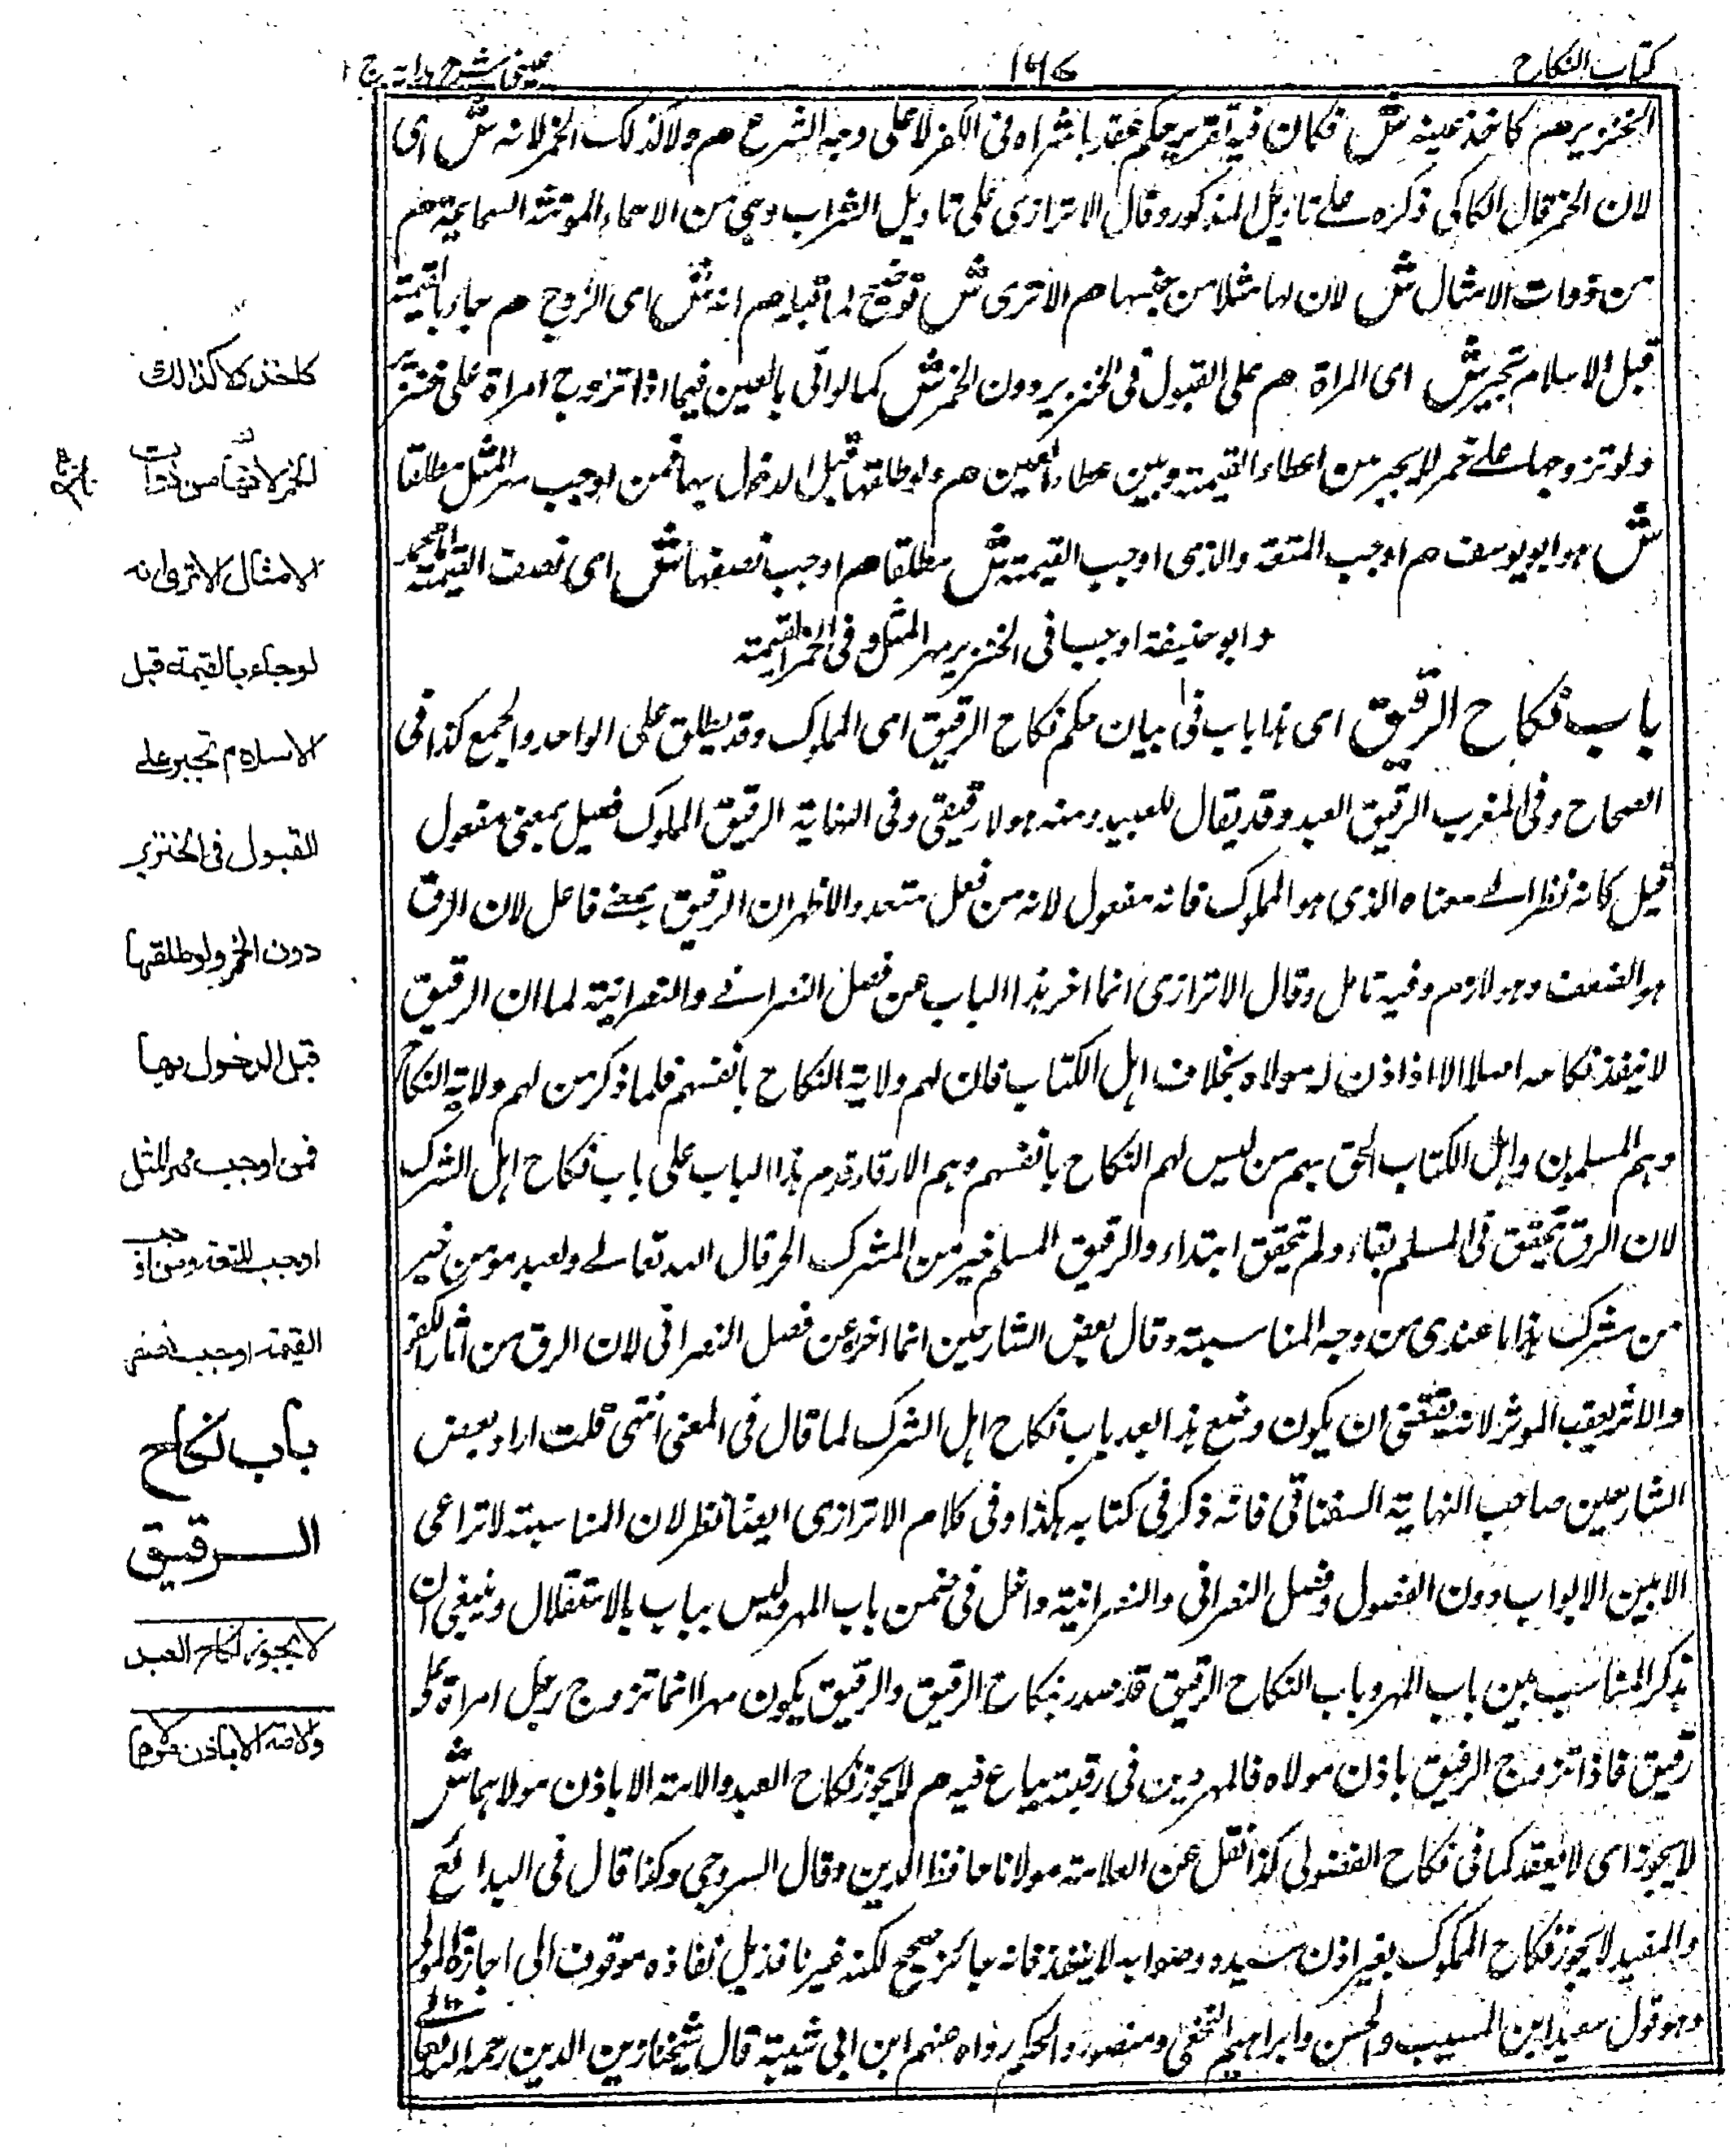 كتاب النكاح
١٦٧
عينى شرح هدايه ج ١
الخنزير هم كاخذ عينه ش فكان فيه تقرير حكم عقد باشراه فى الكفر لا على وجه الشرع هم ولا كذلك الخمر لانه ش اى
لان الخمر قال الكاكى ذكره على تاويل المذكور وقال الاترازى على تاويل الشراب وهى من الاسماء المونثة السماعية هم
من ذوات الامثال ش لان لها مثلا من جنسها هم الا ترى ش توضيح لما قبله هم انه ش اى الزوج هم جاء بالقيمة
قبل الاسلام تجبر ش اى المراة هم على القبول فى الخنزير دون الخمر ش كما لو اتى بالعين فيما اذا تزوج امراة على خنزير
ولو تزوجها على خمر لا يجبر من اعطاء القيمة وبين عطاء العين هم ولو طلقها قبل الدخول بها فمن اوجب مهر المثل مطلقا
ش هو ابو يوسف هم اوجب المتعة والذى اوجب القيمة ش مطلقا هم اوجب نصفها ش اى نصف القيمة
وابو حنيفة اوجب فى الخنزير مهر المثل وفى الخمر القيمة
باب نكاح الرقيق اى هذا باب فى بيان حكم نكاح الرقيق اى المملوك وقد يطلق على الواحد والجمع كذا فى
الصحاح وفى المغرب الرقيق العبد وقد يقال للعبيد ومنه هولا رقيقى وفى النهاية الرقيق المملوك فعيل بمعنى مفعول
قيل كانه نظر الى معناه الذى هو المملوك فانه مفعول لانه من فعل متعد والاظهر ان الرقيق بمعنى فاعل لان الرق
هو الضعف وهو لازم وفيه تامل وقال الاترازى انما اخر هذا الباب عن فصل النصرانى والنصرانية لما ان الرقيق
لا ينفذ نكاحه اصلا الا اذا اذن له مولاه بخلاف اهل الكتاب فان لهم ولاية النكاح بانفسهم فلما ذكر من لهم ولاية النكاح
وهم المسلمون واهل الكتاب الحق بهم من ليس لهم النكاح بانفسهم وهم الارقاء قدم هذا الباب على باب نكاح اهل الشرك
لان الرق تحقق فى المسلم بقاء ولم تحقق ابتداء والرقيق المسلم خير من المشرك الحر قال الله تعالى ولعبد مومن خير
من مشرك هذا ما عندى من وجه المناسبة وقال بعض الشارحين انما اخره عن فصل النصرانى لان الرق من اثار الكفر
والاثر يعقب الموثر لانه يقتضى ان يكون وضع هذا بعد باب نكاح اهل الشرك لما قال فى المعنى انتهى قلت اراد ببعض
الشارحين صاحب النهاية السغناقى فانه ذكر فى كتابه هكذا وفى كلام الاترازى ايضا نظر لان المناسبة لا تراعى
الا بين الابواب دون الفصول وفصل النصرانى والنصرانية داخل فى ضمن باب المهر وليس بباب بالاستقلال وينبغى ان
يذكر المناسب بين باب المهر وباب النكاح الرقيق قد صدر نكاح الرقيق والرقيق يكون مهرا انما تزوج رجل امراة على
رقيق فاذا تزوج الرقيق باذن مولاه فالمهر دين فى رقبته يباع فيه هم لا يجوز نكاح العبد والامة الا باذن مولاهما ش
لا يجوز اى لا ينعقد كما فى نكاح الفضولى كذا نقل عن العلامة مولانا حافظ الدين وقال السروجى وكذا قال فى البدائع
والمفيد لا يجوز نكاح المملوك بغير اذن سيده وصوابه لا ينفذ فانه جائز صحيح لكنه غير نافذ بل نفاذه موقوف الى اجازة المولى
وهو قول سعيد ابن المسيب والحسن وابراهيم النخعى ومنصور والحكم رواه عنهم ابن ابى شيبة قال شيخنا زين الدين رحمه الله تعالى
كاخذه ولا كذالك
الخمر لانها من ذوات
الامثال الا ترى انه
لو جاء بالقيمة قبل
الاسلام تجبر على
القبول فى الخنزير
دون الخمر ولو طلقها
قبل الدخول بها
فمن اوجب مهر المثل
اوجب المتعة ومن اوجب
القيمة اوجب نصفها
باب نكاح
الرقيق
لا يجوز نكاح العبد
والامة الا باذن مولاهما